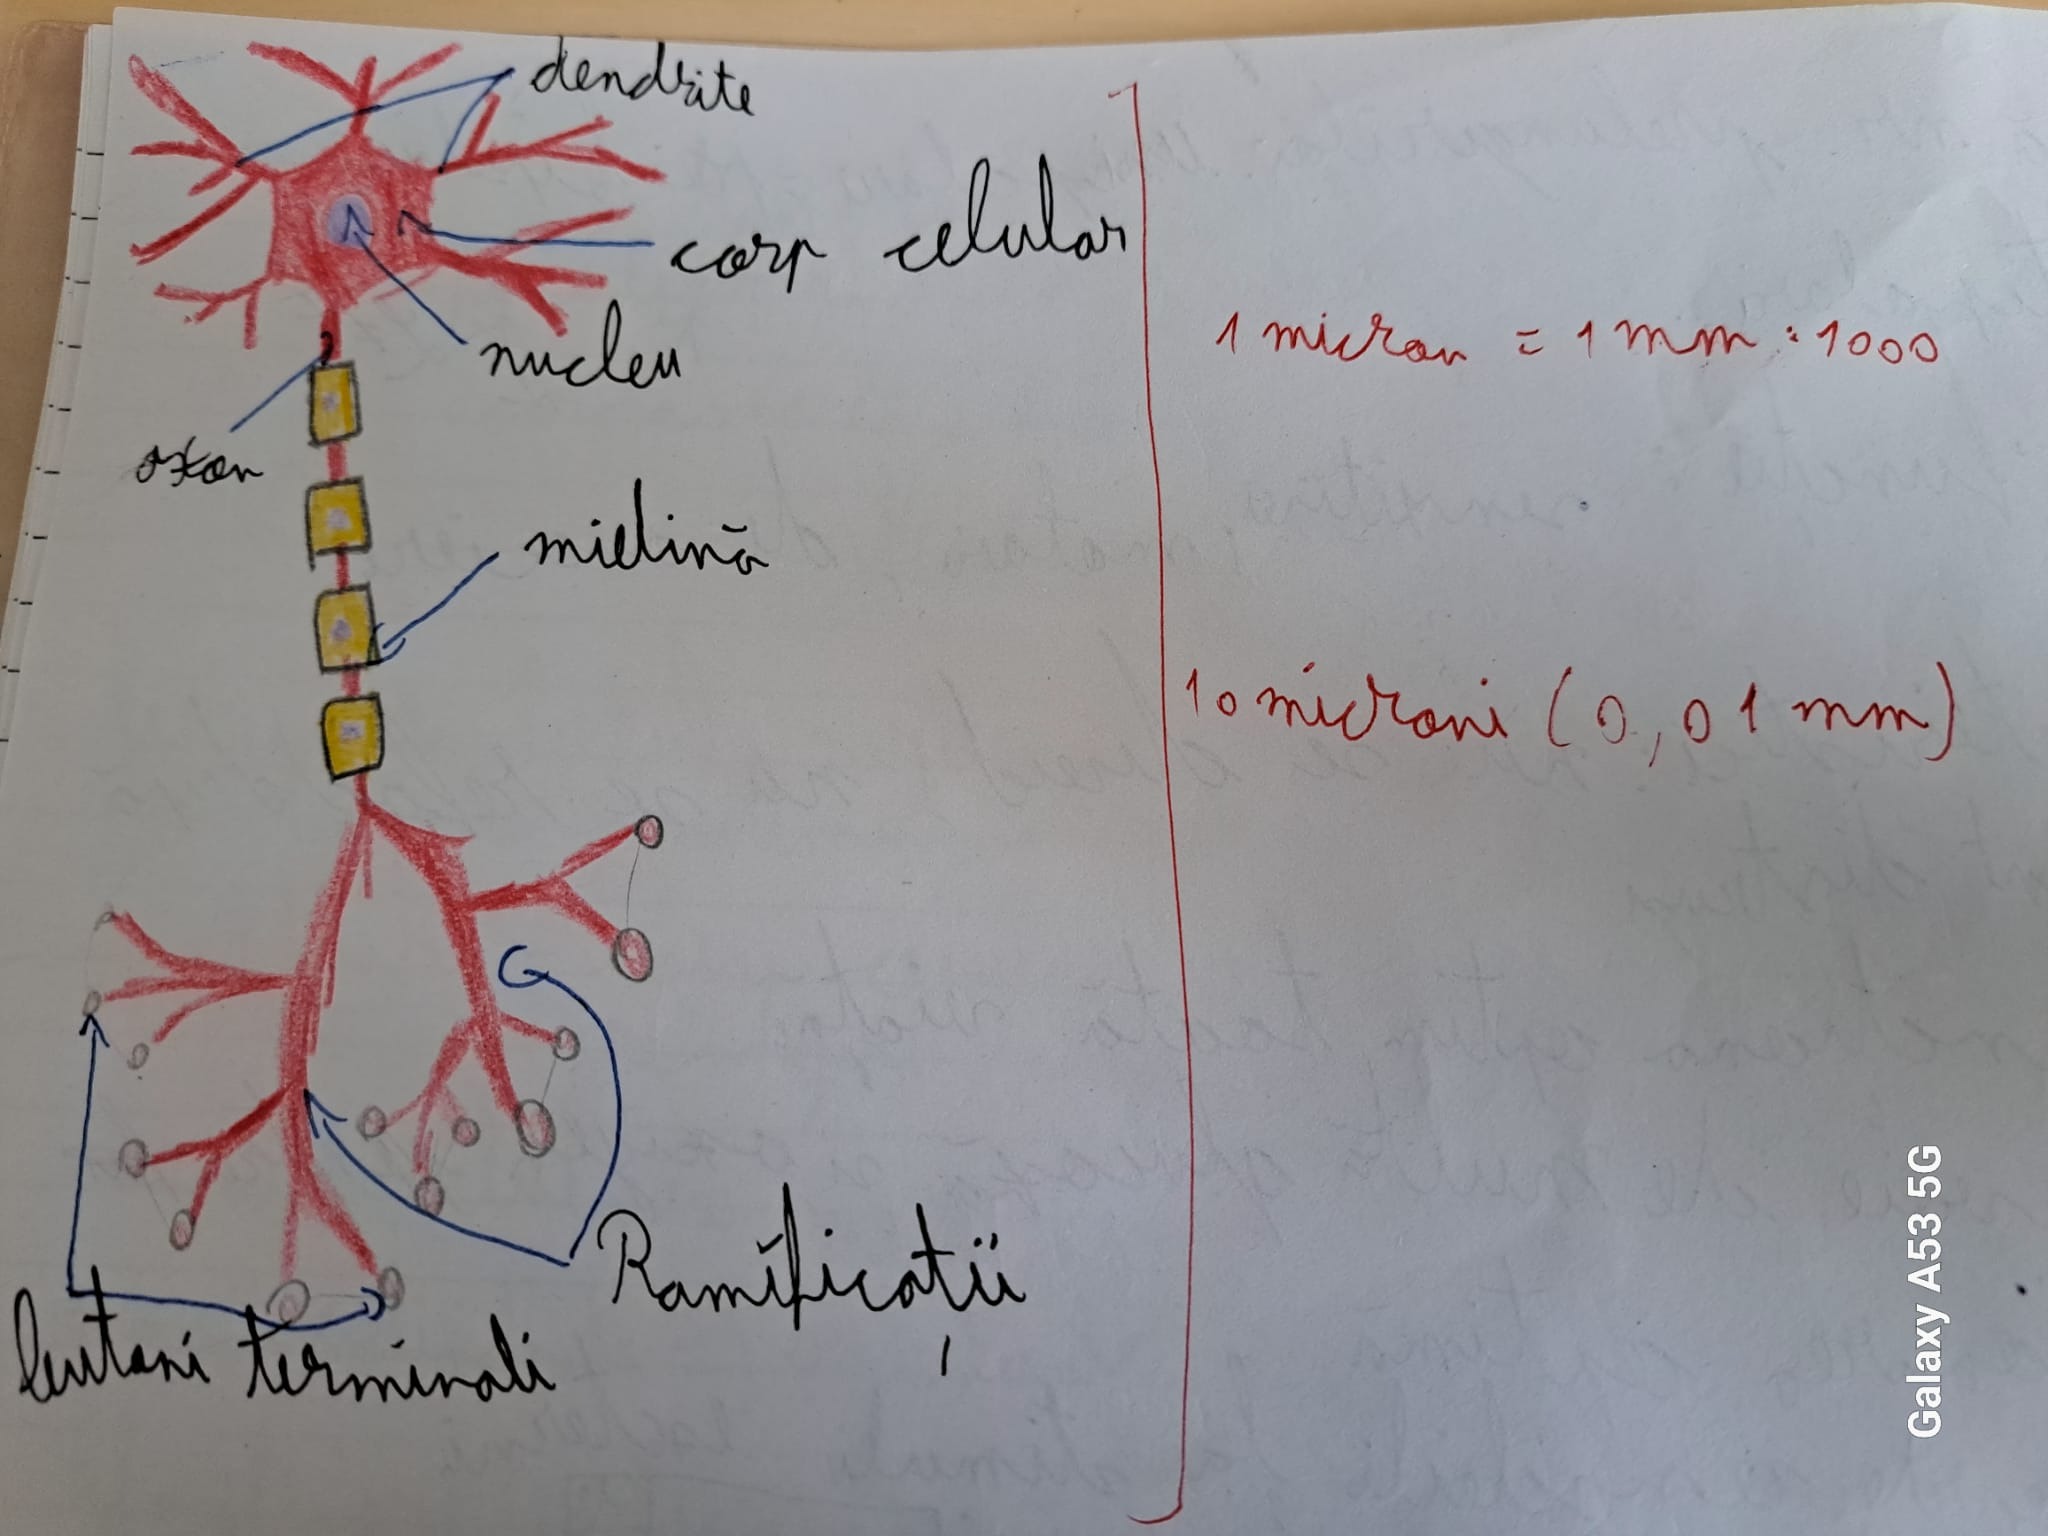 dendrite
corp celular
nucleu
axon
mielină
Ramificații
butoni terminali
1 micron = 1 mm : 1000
10 microni (0,01 mm)
Galaxy A53 5G